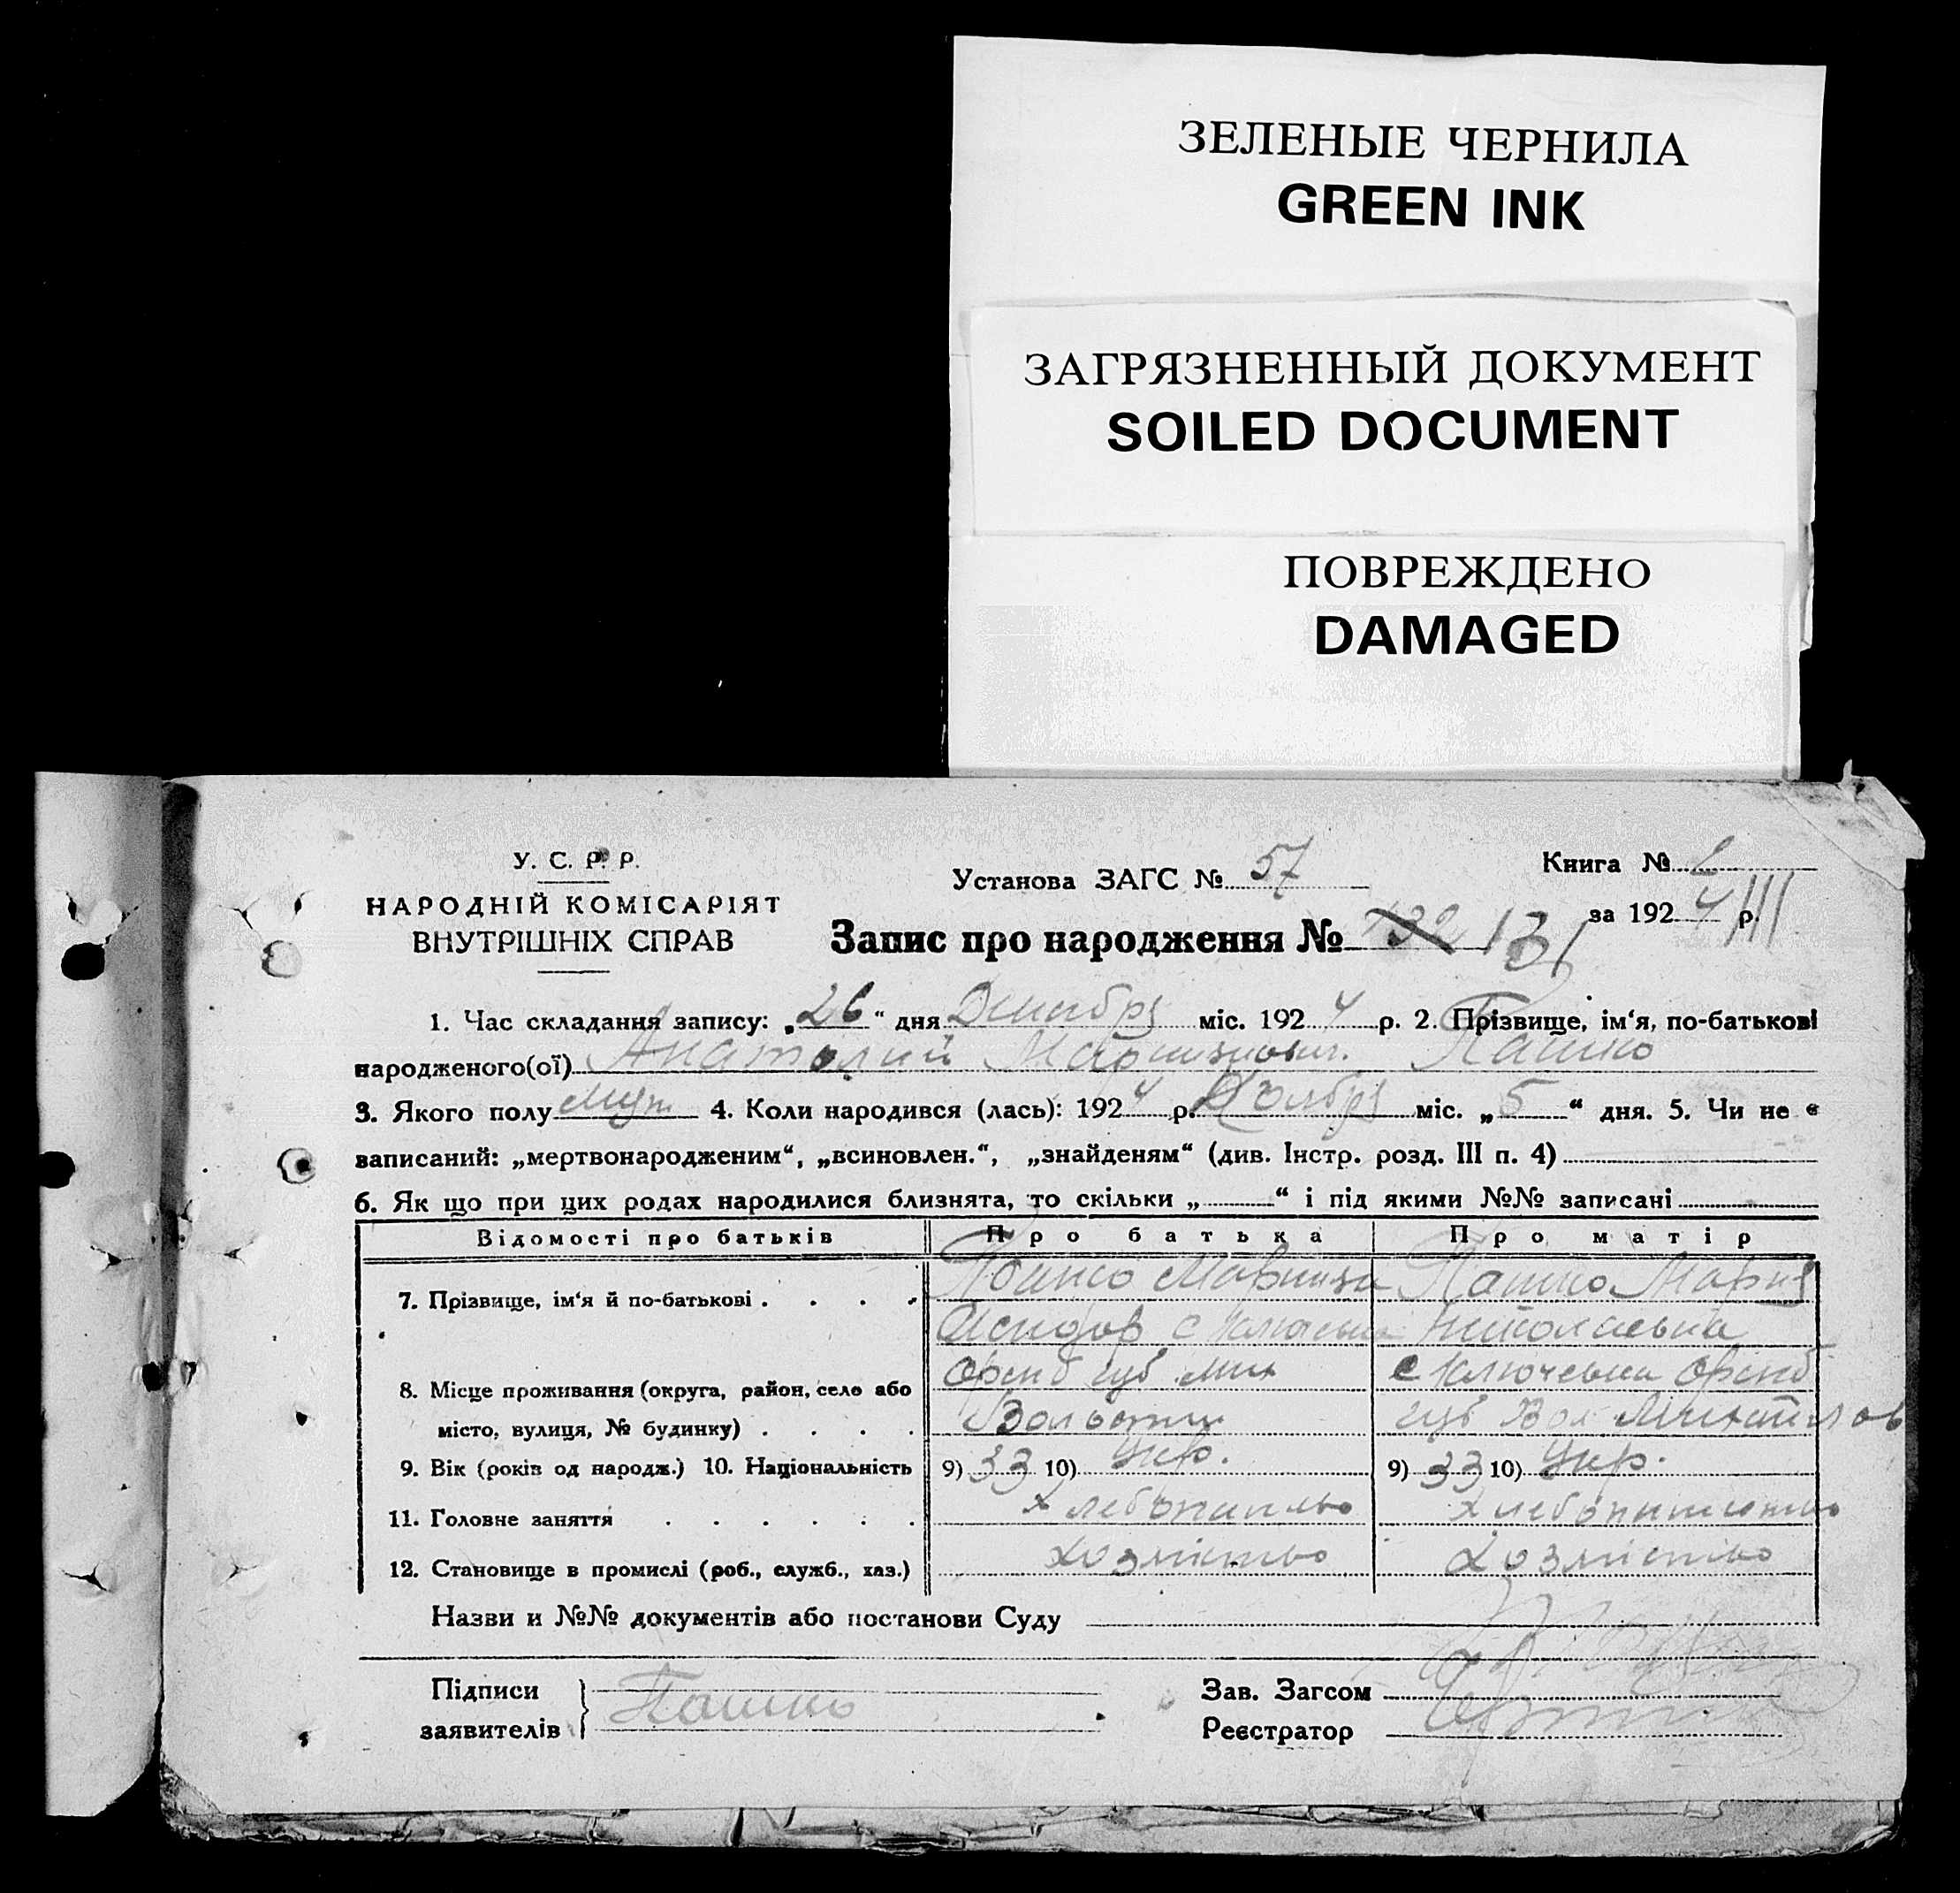 ЗЕЛЕНЫЕ ЧЕРНИЛА
GREEN INK
ЗАГРЯЗНЕННЫЙ ДОКУМЕНТ
SOILED DOCUMENT
ПОВРЕЖДЕНО
DAMAGED
У. С. Р. Р.
НАРОДНІЙ КОМІСАРІЯТ
ВНУТРІШНІХ СПРАВ
Установа ЗАГС № 57
Книга №
за 1924 р.
Запис про народження № 132 131
1. Час складання запису: „26“ дня Декабря міс. 1924 р. 2. Прізвище, ім‘я, по-батькові
народженого(ої) Анатолий Пашко
3. Якого полу муж 4. Коли народився (лась): 1924 р. Ноября міс. „5“ дня. 5. Чи не є
записаний: „мертвонародженим“, „всиновлен.“, „знайденям“ (див. Інстр. розд. III п. 4)
6. Як що при цих родах народилися близнята, то скільки „ “ і під якими №№ записані
Відомості про батьків Про батька Про матір
7. Прізвище, ім‘я й по-батькові . . . . Пашко Пашко Мария
Исидор с Николаевна
Оренб губ мих с Ключевка Оренб
8. Місце проживання (округа, район, село або
місто, вулиця, № будинку) . . . . губ Вол Михайлов
9. Вік (років од народж.) 10. Національність 9) 33 10) Укр. 9) 33 10) Укр.
11. Головне заняття . . . . . .
12. Становище в промислі (роб., служб., хаз.)
Назви и №№ документів або постанови Суду
Підписи
заявителів Пашко
Зав. Загсом
Реєстратор